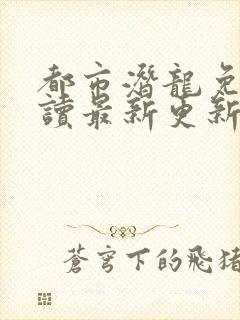 都市潛龍免
讀最新更新
蒼穹下的飛豬